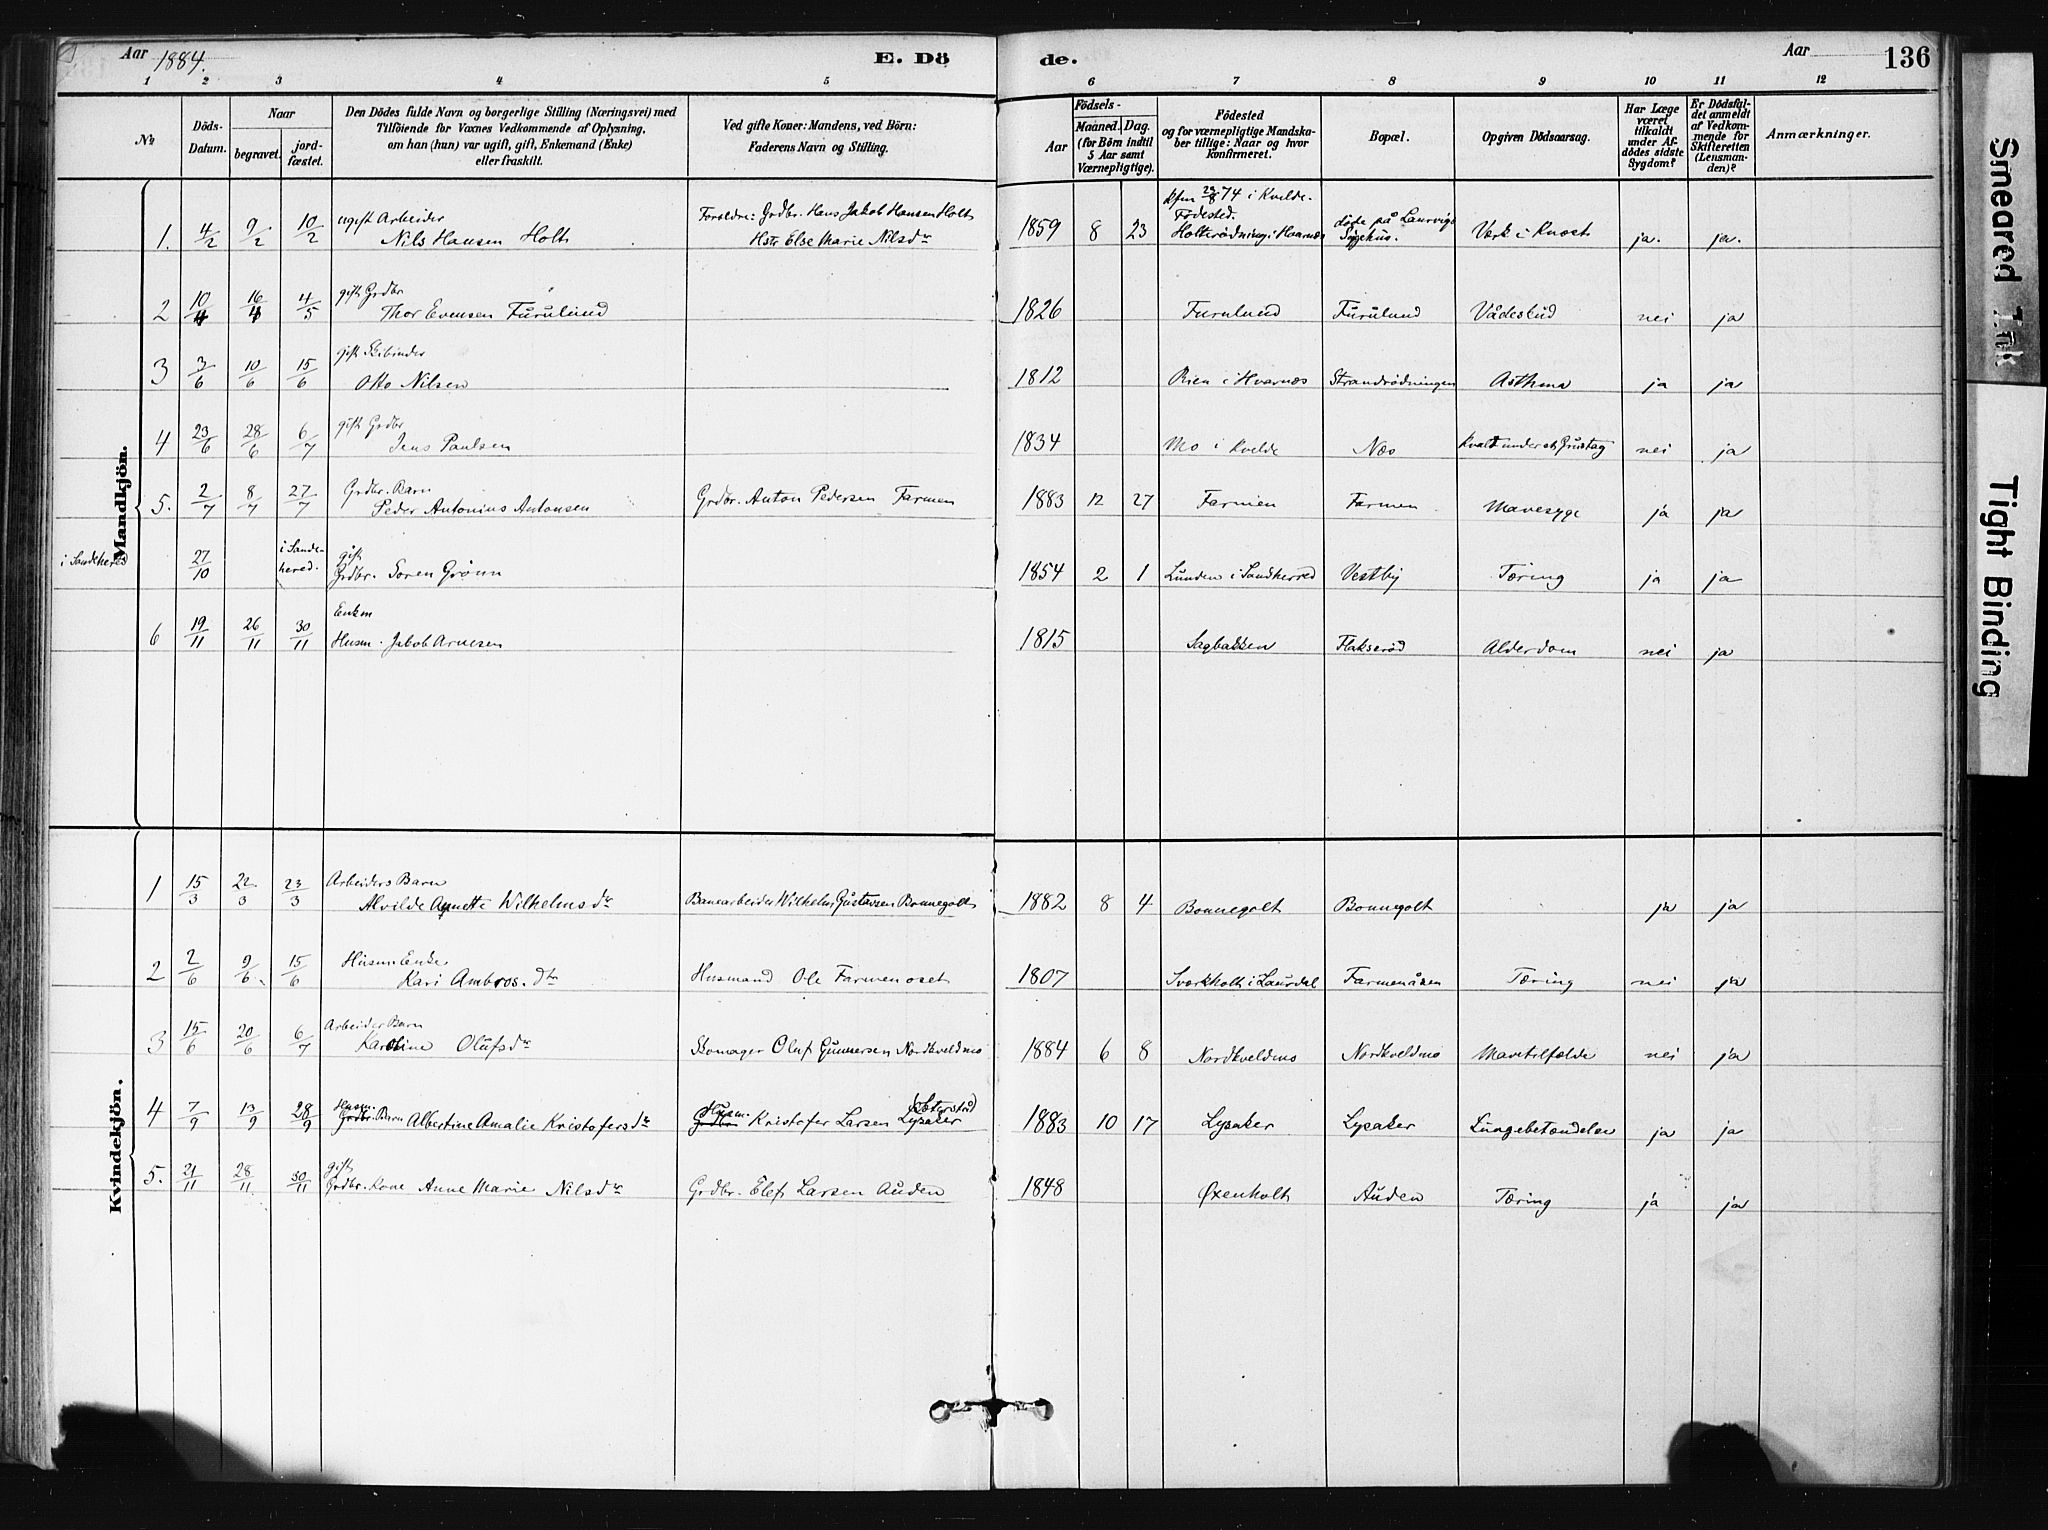 Aar 1884.
E. Döde.
Aar
136
1 2 3 4 5 6 7 8 9 10 11 12
No
Döds-Datum.
Naar
begravet.
jordfæstet.
Den Dödes fulde Navn og borgerlige Stilling (Næringsvei) med
Tilföiende for Voxnes Vedkommende af Oplysning,
om han (hun) var ugift, gift, Enkemand (Enke)
eller fraskilt.
Ved gifte Koner: Mandens, ved Börn:
Faderens Navn og Stilling.
Födsels-
Aar
Maaned.
Dag.
(for Börn indtil
5 Aar samt
Værnepligtige).
Födested
og for værnepligtige Mandska-
ber tillige: Naar og hvor
konfirmeret.
Bopæl.
Opgiven Dödsaarsag.
Har Læge
været
tilkaldt
under Af-
dödes sidste
Sygdom?
Er Dödsfal-
det anmeldt
af Vedkom-
mende for
Skifteretten
(Lensman-
den)?
Anmærkninger.
Mandkjön.
1. 4/2 9/2 10/2 ugift Arbeider
Nils Hansen Holt
Foreldre: Grdbr. Hans Jakob Hansen Holt
Hstr Else Marie Nilsdr
1859 8 23
74 i Kvelde.
Fødested.
Holterødning i Hvarnes
døde på Laurvigs
Sygehus.
Værk i Knæet ja. ja.
2 10/4 16/4 4/5 gift Grdbr
Thor Evensen Furulund
1826 Furulund Furulund Vådeskud nei ja
3 3/6 10/6 15/6 gift Skibinder
Otto Nilsen
1812 Rien i Hvarnes Strandrødningen Asthma ja ja
4 23/6 28/6 6/7 gift Grdbr
Jens Paulsen
1834 Mo i Kvelde Næs Kvalt under et Grustag nei ja
5. 2/7 8/7 27/7 Grdbr. Barn
Peder Antonius Antonsen
Grdbr. Anton Pedersen Farmen
1883 12 27 Farmen Farmen Mavesyge ja ja
i Sandeherred 27/10 i Sande-
herred.
gift
Grdbr. Soren Grønn
1854 2 1 Lunden i Sandherred Vestby Tæring ja ja
6 19/11 26/11 30/11 Enkem
Husm. Jakob Arnesen
1815 Sagbakken Flakserød Alderdom nei ja
Kvindekjön.
1 15/3 22/3 23/3 Arbeiders Barn
Alvilde Agnette Wilhelmsdr
Banearbeider Wilhelm Gustavsen Bonnegolt
1882 8 4 Bonnegolt Bonnegolt ja ja
2 2/6 9/6 15/6 Husm Enke
Kari Ambros.dtr
Husmand Ole Farmenoset
1807 Sværkholt i Laurdal Farmenåsen Tæring nei ja
3 15/6 20/6 6/7 Arbeider Barn
Karoline Olufsdr
Skomager Oluf Gunnersen Nordkveldmo
1884 6 8 Nordkveldmo Nordkveldmo Mavetilfælde nei ja
4 7/9 13/9 28/9 Husm.
Grdbr. Barn Albertine Amalie Kristofersdr
Husm.
Grdbr Kristofer Larsen Lysaker
1883 10 17 Lysaker Lysaker Lungebetændelse ja ja
5. 21/11 28/11 30/11 gift
Grdbr. Kone Anne Marie Nilsdr
Grdbr. Elef Larsen Auden
1848 Øxenholt Auden Tæring ja ja
Smeared Ink
Tight Binding